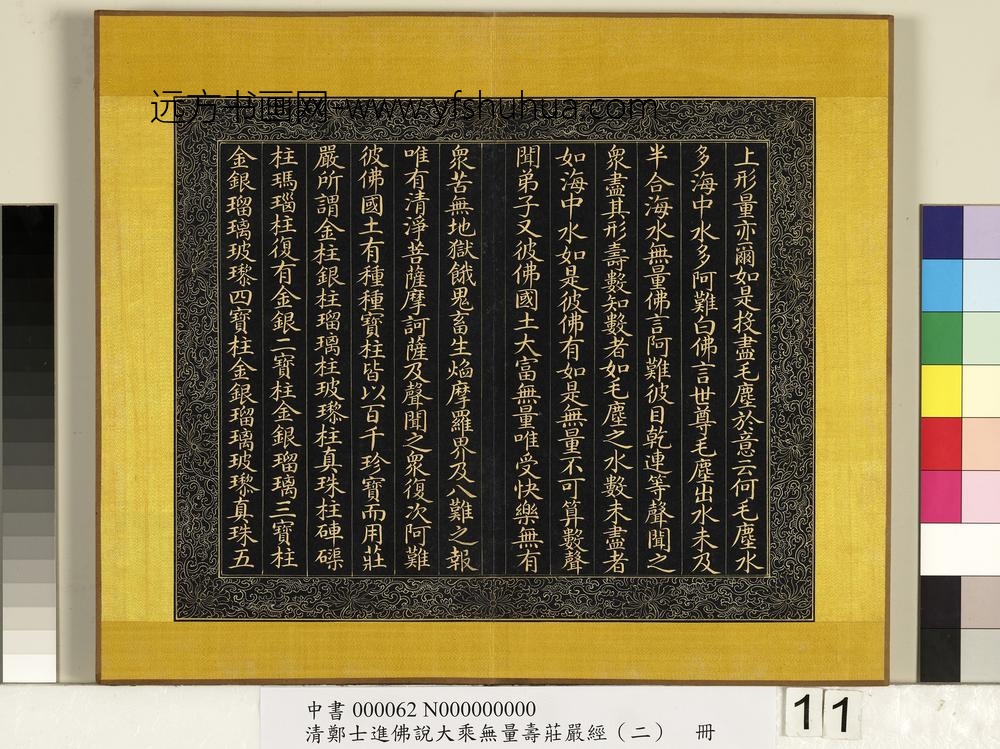 远方书画网-www.yfshuhua.com
上形量亦爾如是投盡毛塵於意云何毛塵水
多海中水多阿難白佛言世尊毛塵出水未及
半合海水無量佛言阿難彼目乾連等聲聞之
衆盡其形壽數知數者如毛塵之水數未盡者
如海中水如是彼佛有如是無量不可算數聲
聞弟子又彼佛國土大富無量唯受快樂無有
衆苦無地獄餓鬼畜生焰摩羅界及八難之報
唯有清淨菩薩摩訶薩及聲聞之衆復次阿難
彼佛國土有種種寶柱皆以百千珍寶而用莊
嚴所謂金柱銀柱瑠璃柱玻瓈柱真珠柱硨磲
柱瑪瑙柱復有金銀二寶柱金銀瑠璃三寶柱
金銀瑠璃玻瓈四寶柱金銀瑠璃玻瓈真珠五
中書 000062 N000000000
清鄭士進佛說大乘無量壽莊嚴經（二） 冊
11